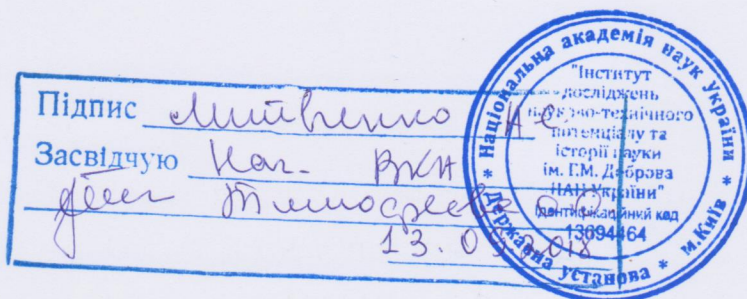 Підпис Литвинко А.С.
Засвідчую Нач. ВКН
Тимофєєва О.О
13.0 2018
* Національна академія наук України * м.Київ * Державна установа
"Інститут
досліджень
науково-технічного
потенціалу та
історії науки
ім. Г.М. Доброва
НАН України"
Ідентифікаційний код
13694464